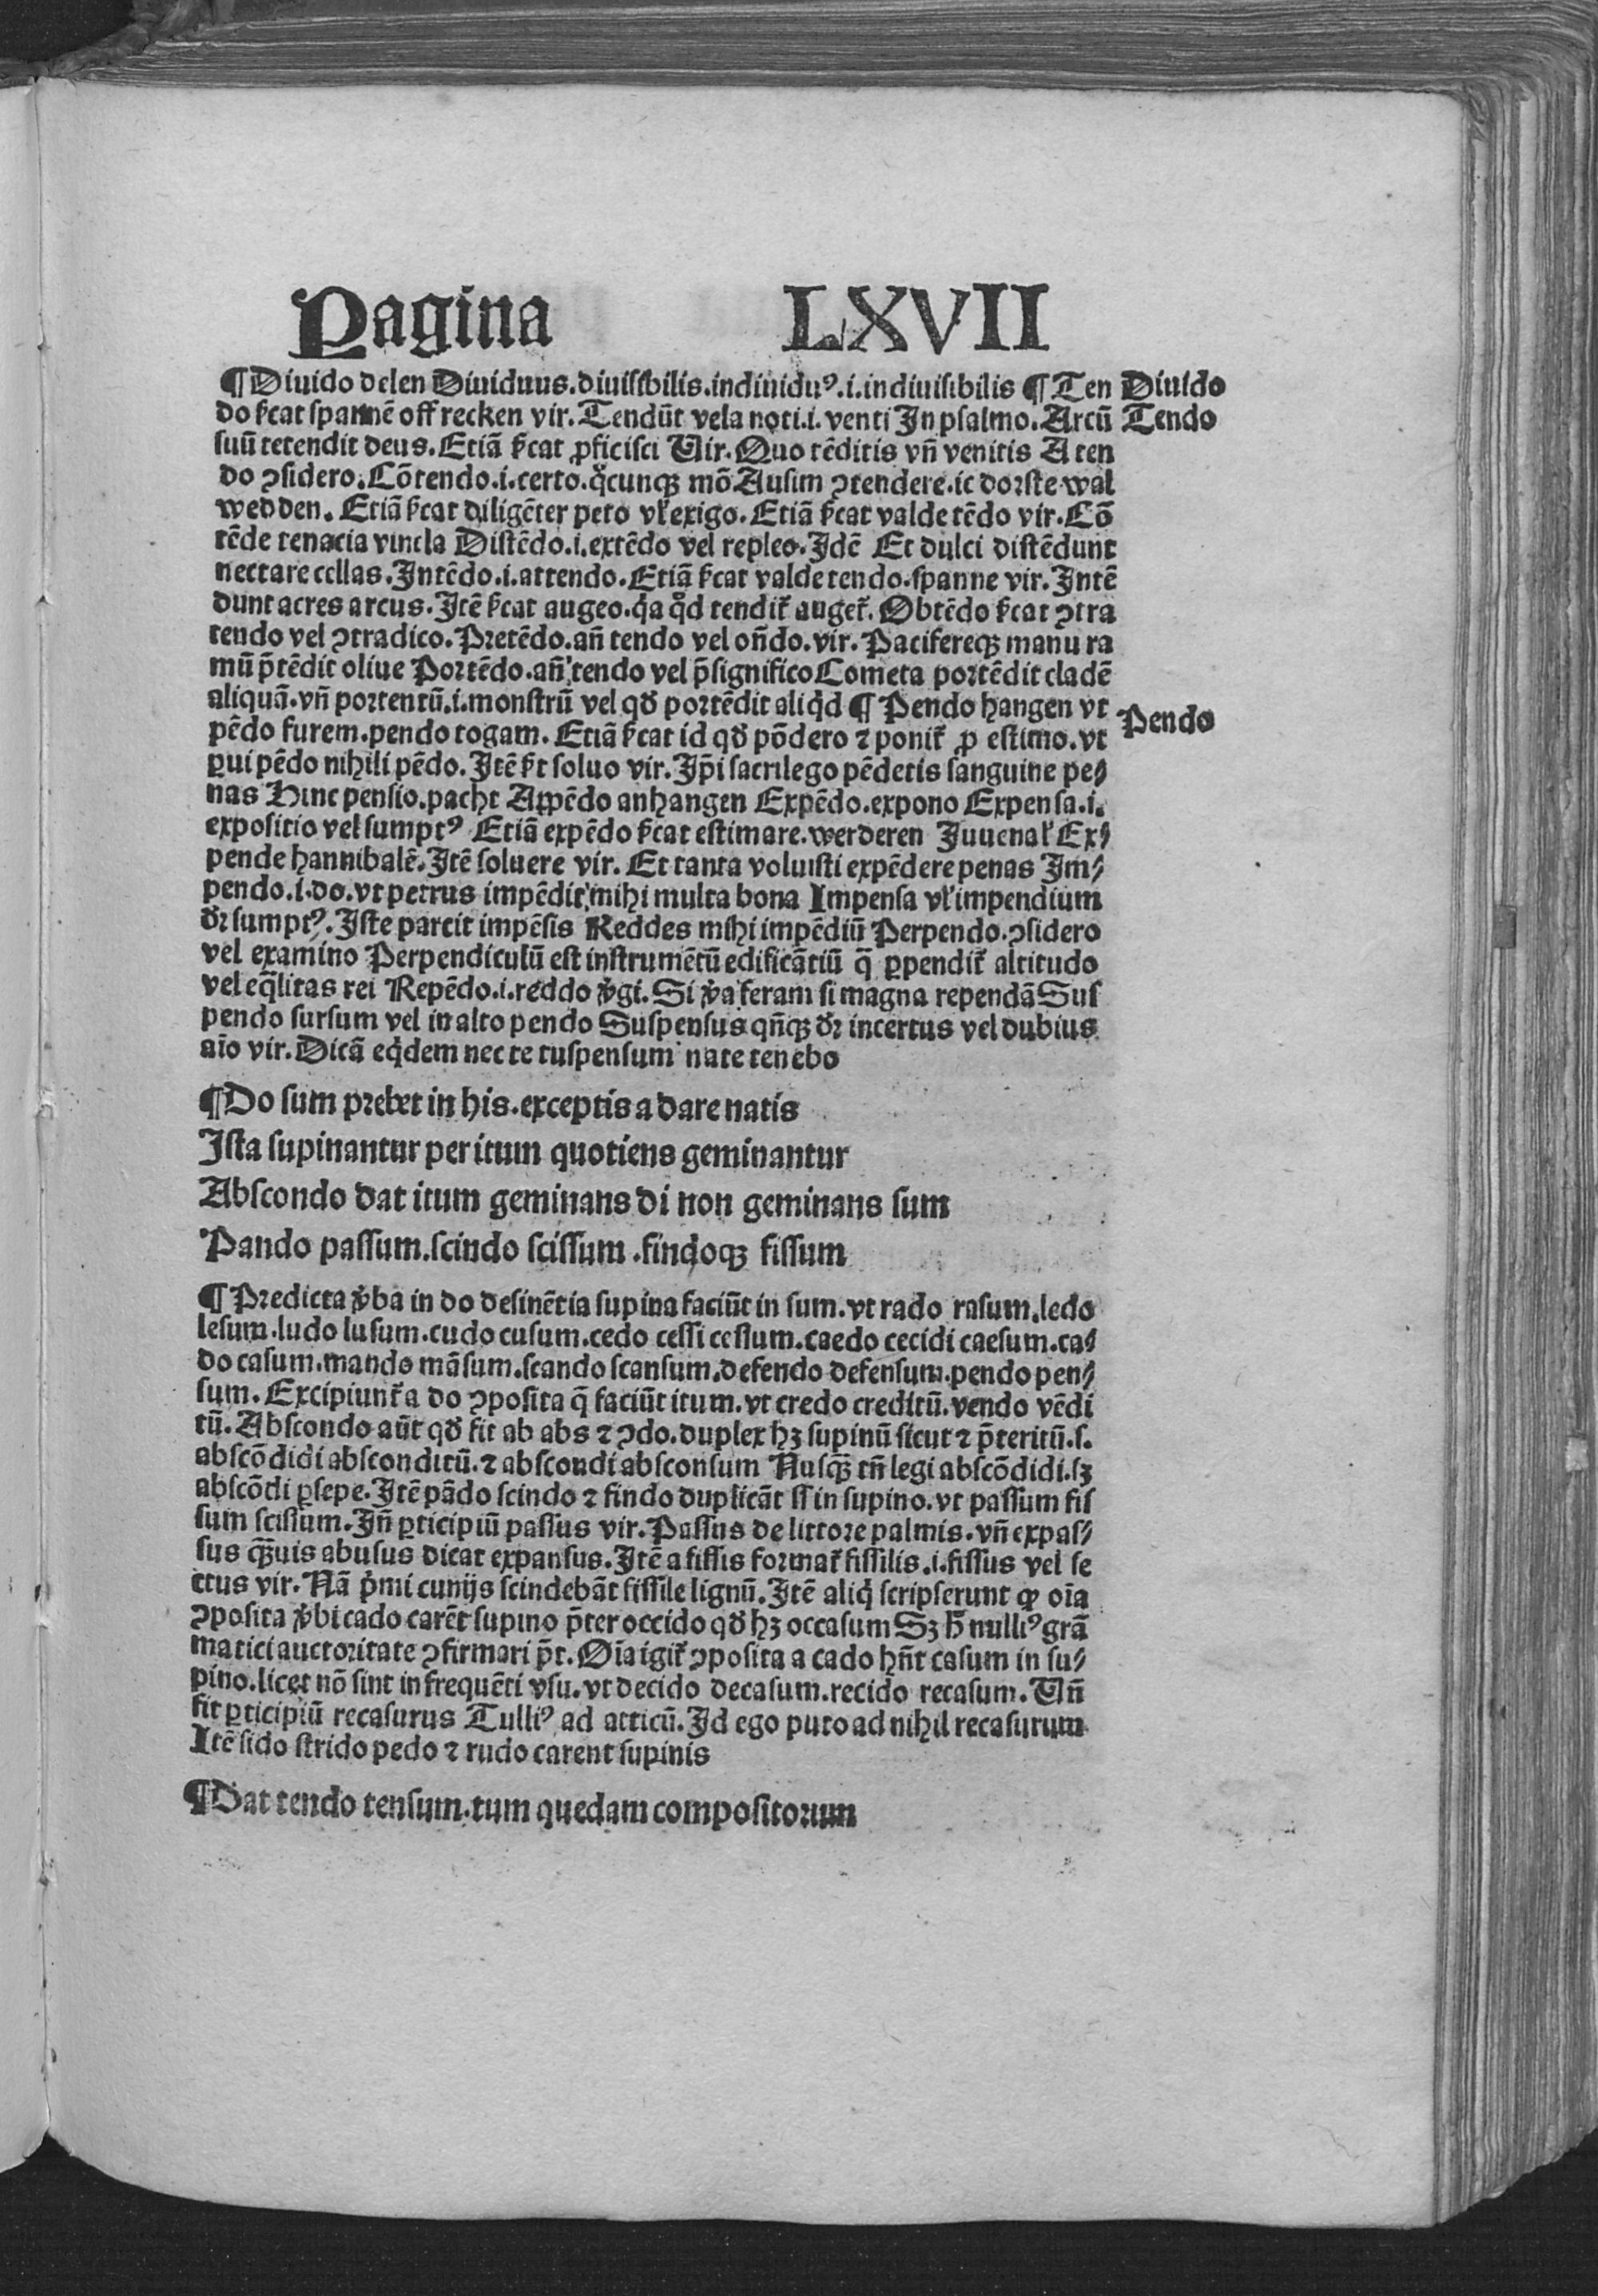 Pagina LXVII
¶Diuido delen Diuiduus.diuisibilis.indiuiduꝰ.i.indiuisibilis ¶Ten Diuido
do ſ̃cat spannẽ off recken vir.Tendũt vela noti.i.venti In psalmo.Arcũ Tendo
suũ tetendit deus.Etiã ſ̃cat ꝓficisci Vir.Quo tẽditis vñ venitis A ten
do ↄsidero.Cõtendo.i.certo.q̊cunqꝫ mõ Ausim ↄtendere.ic dorste wal
wedden. Etiã ſ̃cat diligẽter peto vł exigo.Etiã ſ̃cat valde tẽdo vir.Cõ
tẽde tenacia vincla Distẽdo.i.extẽdo vel repleo.Idẽ Et dulci distẽdunt
nectare cellas.Intẽdo.i.attendo.Etiã ſ̃cat valde tendo.spanne vir.Intẽ
dunt acres arcus.Itẽ ſ̃cat augeo.q̇a qd̊ tendit᷑ auget᷑. Obtẽdo ſ̃cat ↄtra
tendo vel ↄtradico.Pretẽdo.añ tendo vel oñdo.vir.Pacifereqꝫ manu ra
mũ p̃tẽdit oliue Portẽdo.añ tendo vel p̃significo Cometa portẽdit cladẽ
aliquã.vñ portentũ.i.monstrũ vel qđ portẽdit aliq̇d ¶Pendo hangen vt Pendo
pẽdo furem.pendo togam.Etiã ſ̃cat id qđ põdero ⁊ ponit᷑ ꝓ estimo.vt
ꝑui pẽdo nihili pẽdo.Itẽ ſ̃t soluo vir.Ip̃i sacrilego pẽdetis sanguine pe⸗
nas Hinc pensio.pacht Appẽdo anhangen Expẽdo.expono Expensa.i.
expositio vel sumptꝰ Etiã expẽdo ſ̃cat estimare.werderen Iuuenał Ex⸗
pende hannibalẽ.Itẽ soluere vir.Et tanta voluisti expẽdere penas Im⸗
pendo.i.do.vt petrus impẽdit mihi multa bona Impensa vł impendium
dr̃ sumptꝰ.Iste parcit impẽsis Reddes mihi impẽdiũ Perpendo.ↄsidero
vel examino Perpendiculũ est instrumẽtũ edificãtiũ q̃ ꝑpendit᷑ altitudo
vel eq̃litas rei Repẽdo.i.reddo v̓gi.Si v̓a feram si magna rependã Sus
pendo sursum vel in alto pendo Suspensus qñqꝫ dr̃ incertus vel dubius
aĩo vir.Dicã eq̇dem nec te tuspensum nate tenebo
¶Do sum prebet in his.exceptis a dare natis
Ista supinantur per itum quotiens geminantur
Abscondo dat itum geminans di non geminans sum
Pando passum.scindo scissum.findoqꝫ fissum
¶Predicta v̓ba in do desinẽtia supina faciũt in sum.vt rado rasum.ledo
lesum.ludo lusum.cudo cusum.cedo cessi cessum.caedo cecidi caesum.ca⸗
do casum.mando mãsum.scando scansum.defendo defensum.pendo pen⸗
sum.Excipiunt᷑ a do ↄposita q̃ faciũt itum.vt credo creditũ.vendo vẽdi
tũ.Abscondo aũt qđ fit ab abs ⁊ ↄdo.duplex hꝫ supinũ sicut ⁊ p̃teritũ.s.
abscõdidi absconditũ.⁊ abscondi absconsum Nusq̃ꝫ tñ legi abscõdidi.sꝫ
abscõdi ꝑsepe.Itẽ pãdo scindo ⁊ findo duplicãt ss in supino.vt passum fis
sum scissum.Iñ ꝑticipiũ passus vir.Passus de littore palmis.vñ expas⸗
sus q̃ꝫuis abusus dicat expansus.Itẽ a fissis format᷑ fissilis.i.fissus vel se
ctus vir.Nã p̓mi cunijs scindebãt fissile lignũ.Itẽ aliq̇ scripserunt ꝙ oĩa
ↄposita v̓bi cado carẽt supino p̃ter occido qđ hꝫ occasum Sꝫ h̃ nulliꝰ grã
matici auctoritate ↄfirmari p̃t.Oĩa igit᷑ ↄposita a cado hñt casum in su⸗
pino.licet nõ sint in frequẽti vsu.vt decido decasum.recido recasum.Vñ
fit ꝑticipiũ recasurus Tulliꝰ ad atticũ.Id ego puto ad nihil recasurum
Itẽ sido strido pedo ⁊ rudo carent supinis
¶Dat tendo tensum.tum quedam compositorum